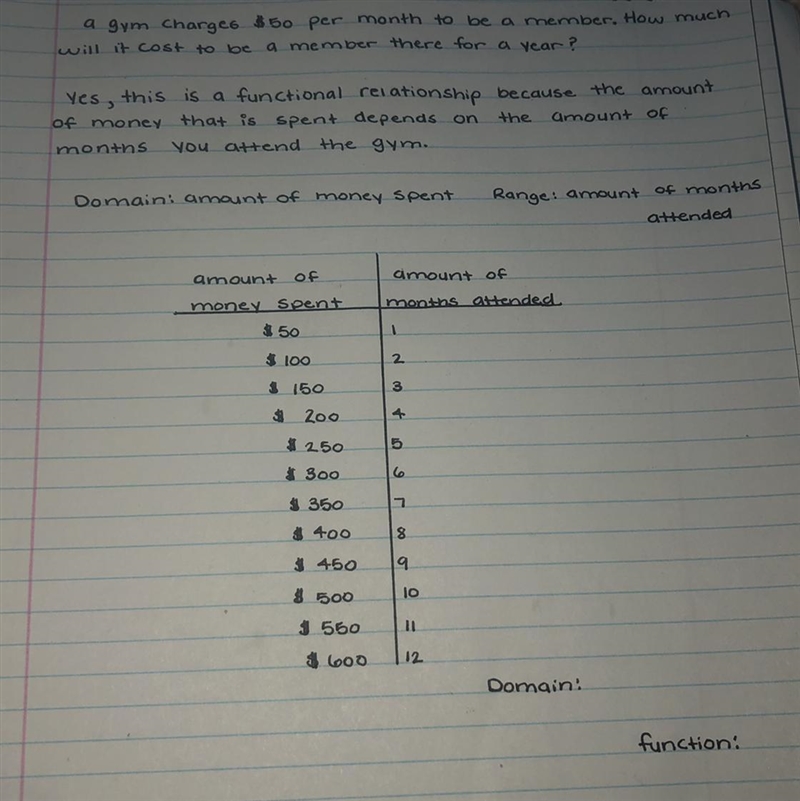 a gym charges $50 per month to be a member. How much
will it cost to be a member there for a year?
Yes, this is a functional relationship because the amount
of money that is spent depends on the amount of
months you attend the gym.
Domain: amount of money spent Range: amount of months
attended
amount of amount of
money spent months attended
$50 1
$100 2
$150 3
$200 4
$250 5
$300 6
$350 7
$400 8
$450 9
$500 10
$550 11
$600 12
Domain:
function: